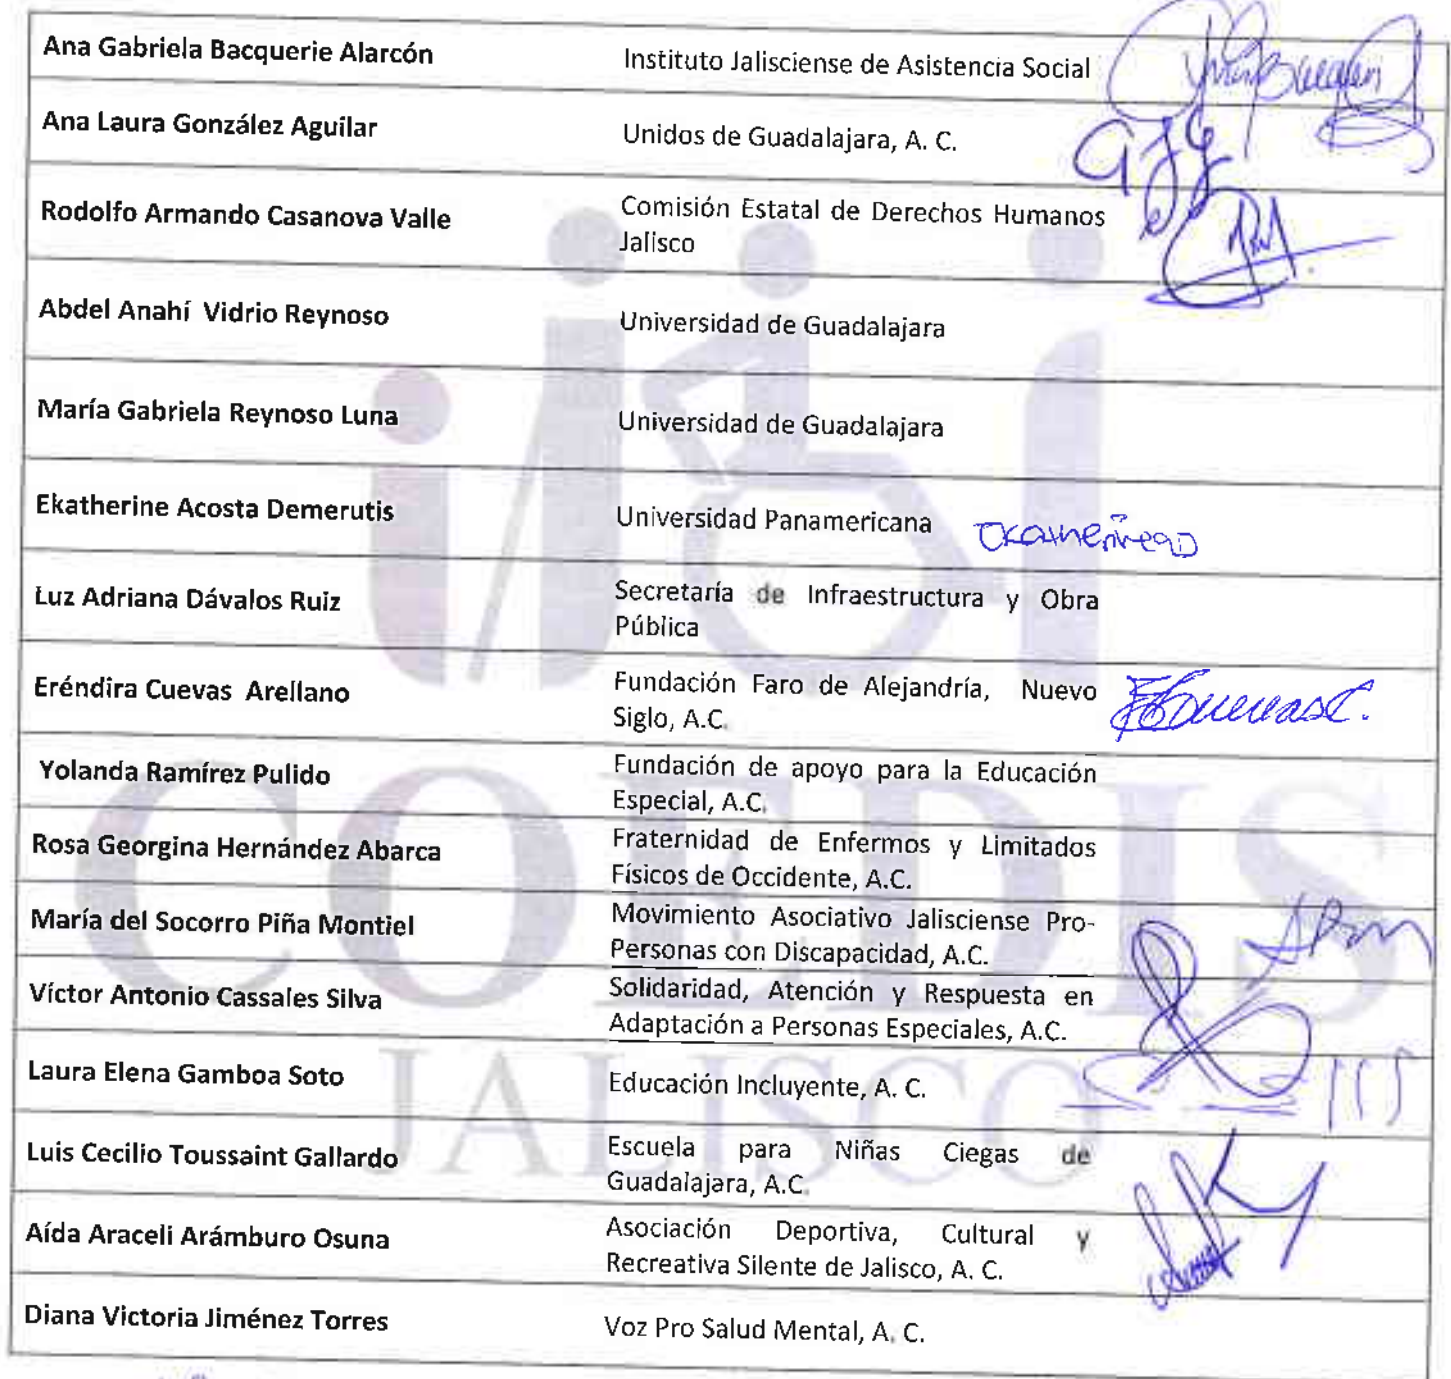 Ana Gabriela Bacquerie Alarcón
Instituto Jalisciense de Asistencia Social
Ana Laura González Aguilar
Unidos de Guadalajara, A. C.
Rodolfo Armando Casanova Valle
Comisión Estatal de Derechos Humanos
Jalisco
Abdel Anahí Vidrio Reynoso
Universidad de Guadalajara
María Gabriela Reynoso Luna
Universidad de Guadalajara
Ekatherine Acosta Demerutis
Universidad Panamericana
Luz Adriana Dávalos Ruiz
Secretaría de Infraestructura y Obra
Pública
Eréndira Cuevas Arellano
Fundación Faro de Alejandría, Nuevo
Siglo, A.C.
Yolanda Ramírez Pulido
Fundación de apoyo para la Educación
Especial, A.C.
Rosa Georgina Hernández Abarca
Fraternidad de Enfermos y Limitados
Físicos de Occidente, A.C.
María del Socorro Piña Montiel
Movimiento Asociativo Jalisciense Pro-
Personas con Discapacidad, A.C.
Víctor Antonio Cassales Silva
Solidaridad, Atención y Respuesta en
Adaptación a Personas Especiales, A.C.
Laura Elena Gamboa Soto
Educación Incluyente, A. C.
Luis Cecilio Toussaint Gallardo
Escuela para Niñas Ciegas de
Guadalajara, A.C.
Aída Araceli Arámburo Osuna
Asociación Deportiva, Cultural y
Recreativa Silente de Jalisco, A. C.
Diana Victoria Jiménez Torres
Voz Pro Salud Mental, A. C.
COEDIS
JALISCO